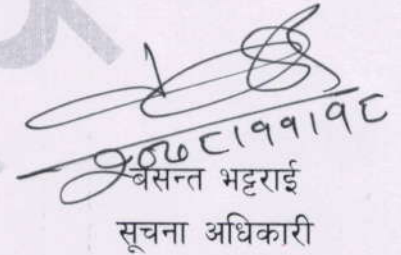 २०७८।११।१८
बसन्त भट्टराई
सूचना अधिकारी